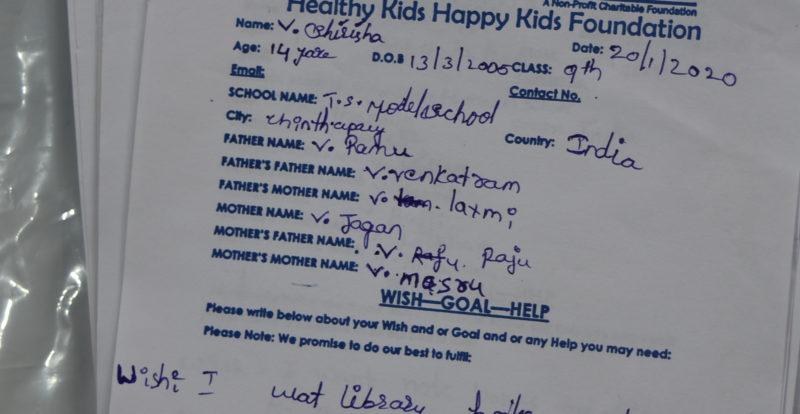 A Non-Profit Charitable Foundation
Healthy Kids Happy Kids Foundation
Name: V. Shirisha Date: 20/1/2020
Age: 14 D.O.B 13/3/2005 CLASS: 9th
Email: Contact No.
SCHOOL NAME: T.S. Model school
City: Country: India
FATHER NAME: V. Ramu
FATHER'S FATHER NAME: V. venkatram
FATHER'S MOTHER NAME: V. laxmi
MOTHER NAME: V. Jagan
MOTHER'S FATHER NAME: V. Raju
MOTHER'S MOTHER NAME: V.
WISH—GOAL—HELP
Please write below about your Wish and or Goal and or any Help you may need:
Please Note: We promise to do our best to fulfil:
Wish: I wat library